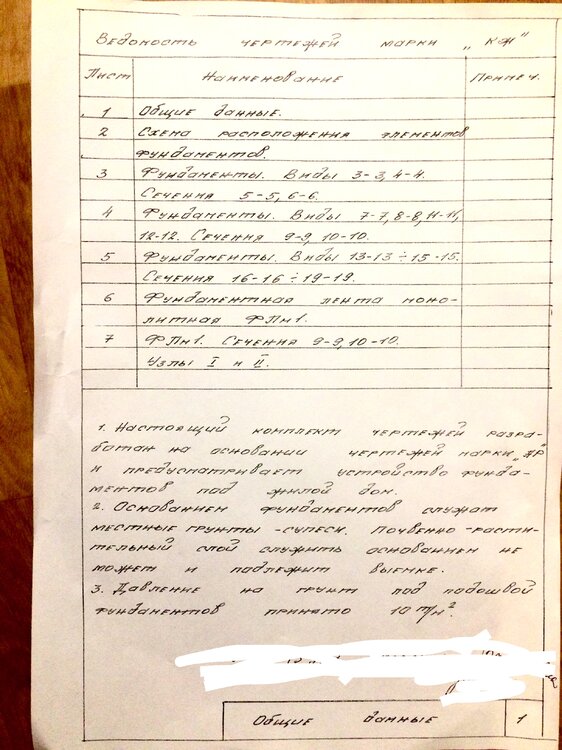 Ведомость чертежей марки „КЖ"
Лист Наименование Примеч.
1 Общие данные.
2 Схема расположения элементов
фундаментов.
3 Фундаменты. Виды 3-3, 4-4.
Сечения 5-5, 6-6.
4 Фундаменты. Виды 7-7, 8-8, 11-11,
12-12. Сечения 9-9, 10-10.
5 Фундаменты. Виды 13-13÷15-15.
Сечения 16-16÷19-19.
6 Фундаментная лента моно-
литная ФЛм1.
7 ФЛм1. Сечения 9-9, 10-10.
Узлы I и II.
1. Настоящий комплект чертежей разра-
ботан на основании чертежей марки „АР"
и предусматривает устройство фунда-
ментов под жилой дом.
2. Основанием фундаментов служат
местные грунты - супеси. Почвенно-расти-
тельный слой служить основанием не
может и подлежит выемке.
3. Давление на грунт под подошвой
фундаментов принято 10 т/м².
Общие данные 1